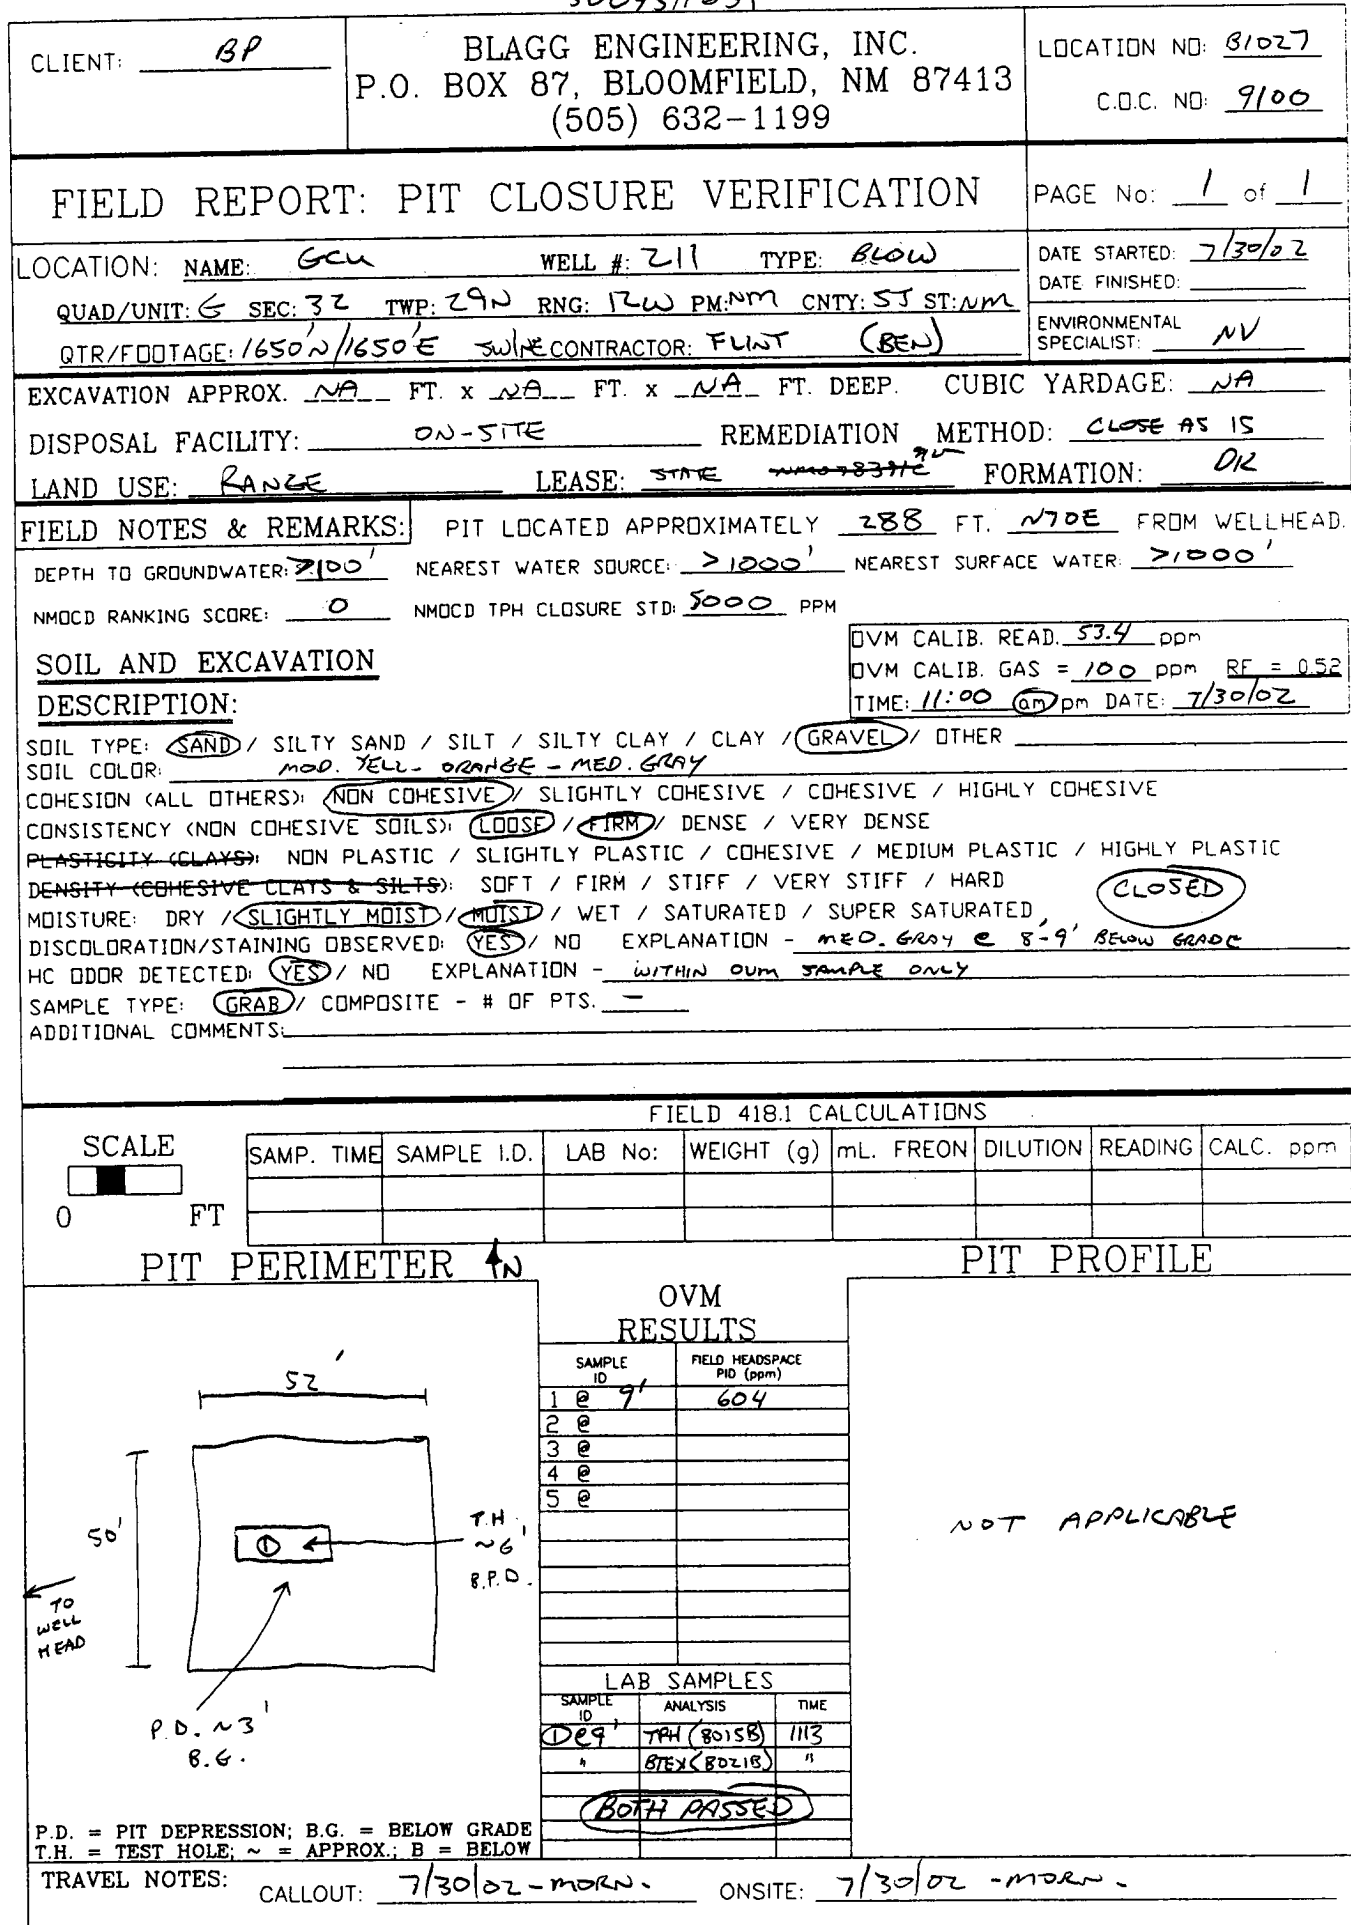 CLIENT: BP
BLAGG ENGINEERING, INC.
P.O. BOX 87, BLOOMFIELD, NM 87413
(505) 632-1199
LOCATION NO: B1027
C.O.C. NO: 9100
FIELD REPORT: PIT CLOSURE VERIFICATION
PAGE No: 1 of 1
LOCATION: NAME: GCU WELL #: 211 TYPE: BLOW
QUAD/UNIT: G SEC: 32 TWP: 29N RNG: 12W PM: NM CNTY: SJ ST: NM
QTR/FOOTAGE: 1650'N/1650'E SW/NE CONTRACTOR: FLINT (BEN)
DATE STARTED: 7/30/02
DATE FINISHED:
ENVIRONMENTAL
SPECIALIST: NV
EXCAVATION APPROX. NA FT. x NA FT. x NA FT. DEEP. CUBIC YARDAGE: NA
DISPOSAL FACILITY: ON-SITE REMEDIATION METHOD: CLOSE AS IS
LAND USE: RANGE LEASE: STATE FORMATION: DK
FIELD NOTES & REMARKS: PIT LOCATED APPROXIMATELY 288 FT. N70E FROM WELLHEAD.
DEPTH TO GROUNDWATER: >100' NEAREST WATER SOURCE: >1000' NEAREST SURFACE WATER: >1000'
NMOCD RANKING SCORE: 0 NMOCD TPH CLOSURE STD: 5000 PPM
OVM CALIB. READ. 53.4 ppm
OVM CALIB. GAS = 100 ppm RF = 0.52
TIME: 11:00 am/pm DATE: 7/30/02
SOIL AND EXCAVATION
DESCRIPTION:
SOIL TYPE: SAND / SILTY SAND / SILT / SILTY CLAY / CLAY / GRAVEL / OTHER
SOIL COLOR: MOD. YELL. ORANGE - MED. GRAY
COHESION (ALL OTHERS): NON COHESIVE / SLIGHTLY COHESIVE / COHESIVE / HIGHLY COHESIVE
CONSISTENCY (NON COHESIVE SOILS): LOOSE / FIRM / DENSE / VERY DENSE
PLASTICITY (CLAYS): NON PLASTIC / SLIGHTLY PLASTIC / COHESIVE / MEDIUM PLASTIC / HIGHLY PLASTIC
DENSITY (COHESIVE CLAYS & SILTS): SOFT / FIRM / STIFF / VERY STIFF / HARD
CLOSED
MOISTURE: DRY / SLIGHTLY MOIST / MOIST / WET / SATURATED / SUPER SATURATED
DISCOLORATION/STAINING OBSERVED: YES / NO EXPLANATION - MED. GRAY @ 8'-9' BELOW GRADE
HC ODOR DETECTED: YES / NO EXPLANATION - WITHIN OVM SAMPLE ONLY
SAMPLE TYPE: GRAB / COMPOSITE - # OF PTS. -
ADDITIONAL COMMENTS:
FIELD 418.1 CALCULATIONS
SCALE
0 FT
SAMP. TIME SAMPLE I.D. LAB No: WEIGHT (g) mL. FREON DILUTION READING CALC. ppm
PIT PERIMETER N
PIT PROFILE
OVM
RESULTS
SAMPLE ID FIELD HEADSPACE PID (ppm)
1 @ 9' 604
2 @
3 @
4 @
5 @
52'
50'
1
T.H.
~6'
B.P.D.
TO
WELL
HEAD
P.D. ~3'
B.G.
NOT APPLICABLE
LAB SAMPLES
SAMPLE ID ANALYSIS TIME
1@9' TPH (8015B) 1113
" BTEX (8021B) "
BOTH PASSED
P.D. = PIT DEPRESSION; B.G. = BELOW GRADE
T.H. = TEST HOLE; ~ = APPROX.; B = BELOW
TRAVEL NOTES: CALLOUT: 7/30/02 - MORN. ONSITE: 7/30/02 - MORN.